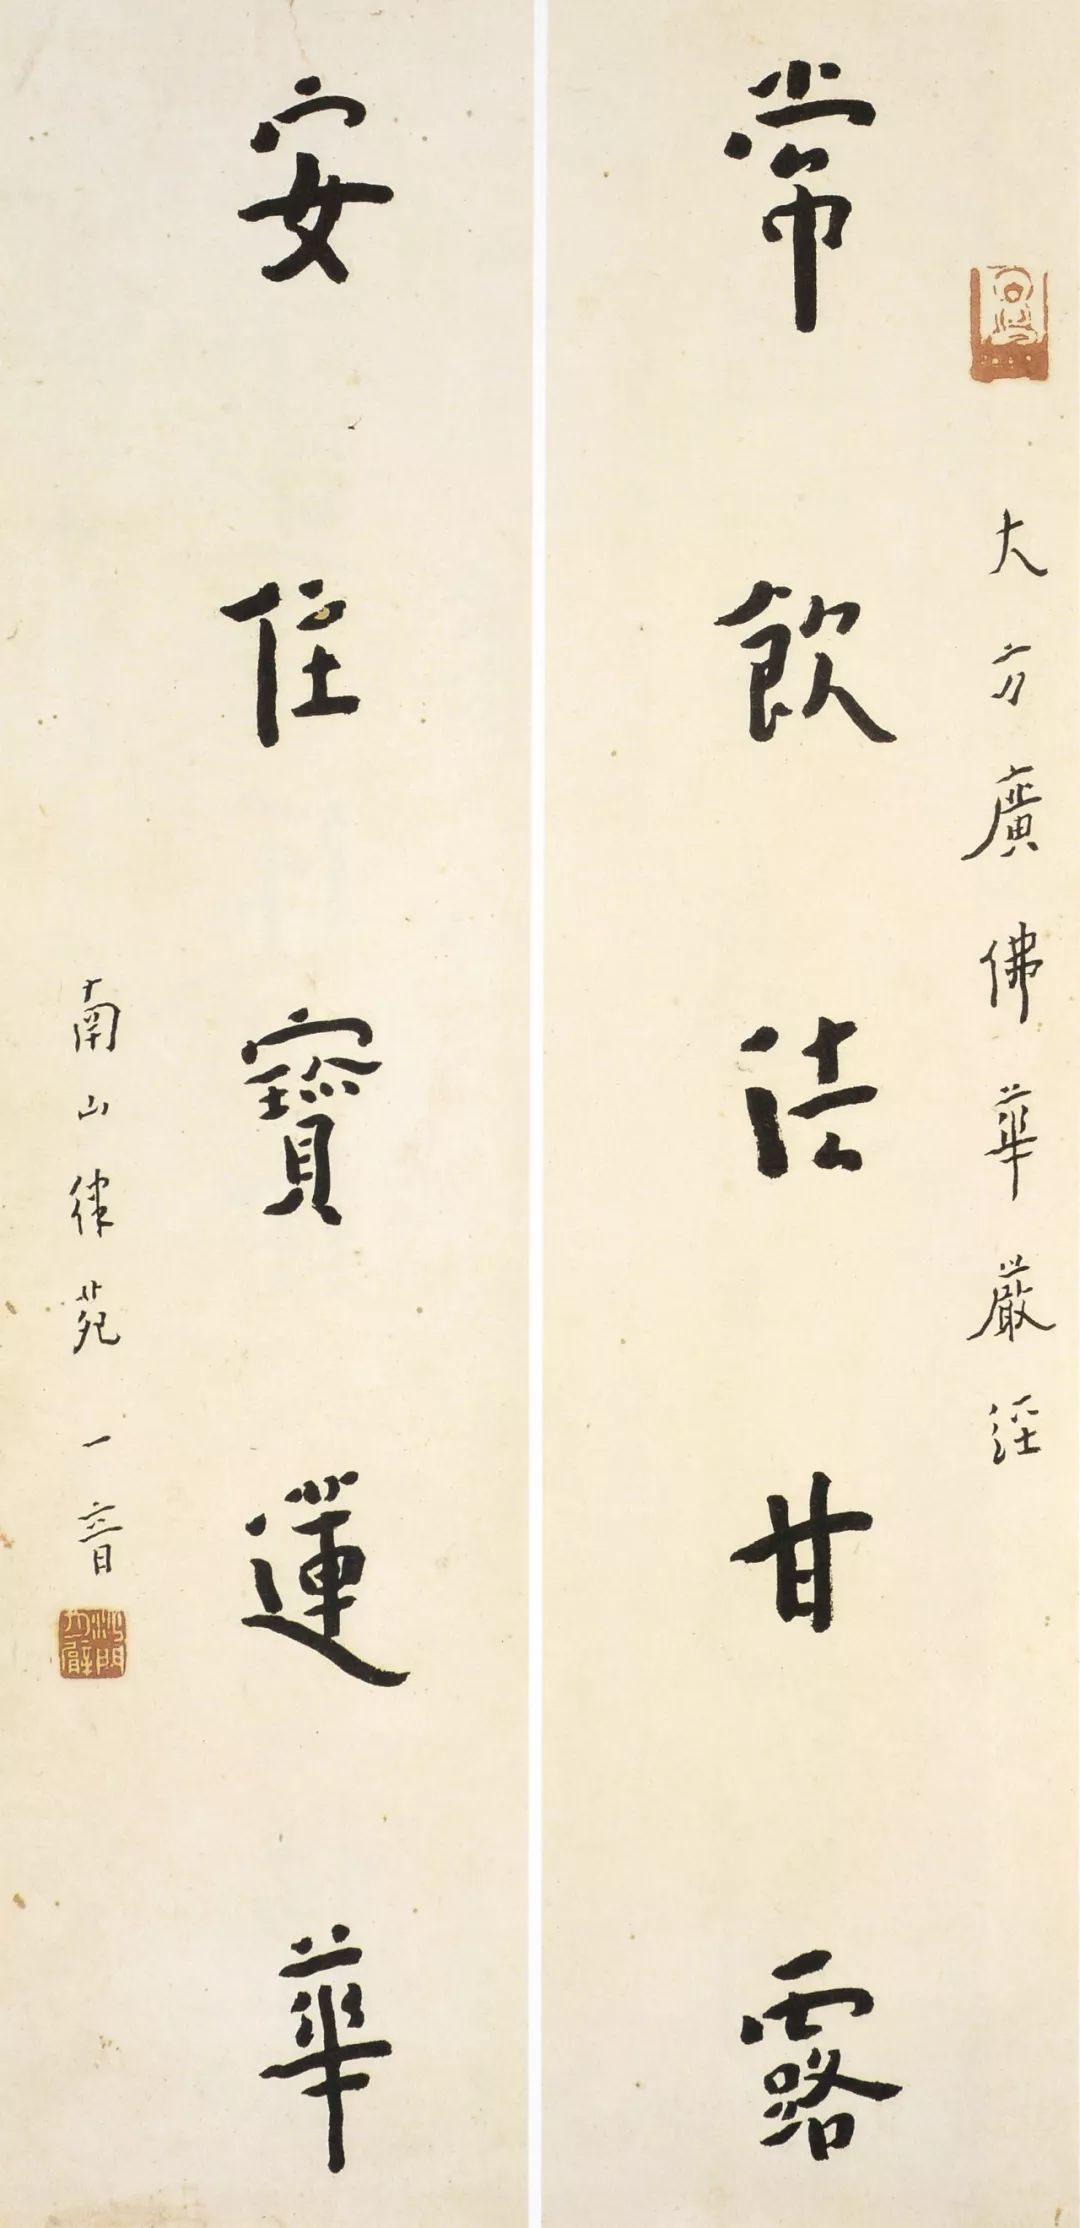 大方廣佛華嚴經
常飲法甘露
安住寶蓮華
南山律苑 一音
沙門月臂